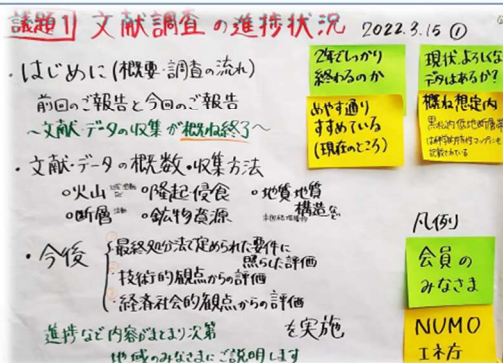 議題1 文献調査の進捗状況 2022.3.15 ①
・はじめに(概要・調査の流れ)
前回のご報告と今回のご報告
～文献・データの収集が概ね終了～
・文献・データの概数・収集方法
○火山 など ○隆起・侵食 ○地質・地質構造など
○断層 ○鉱物資源
・今後
最終処分法で定められた要件に照らした評価
技術的観点からの評価
経済社会的観点からの評価
を実施
進捗など内容がまとまり次第
地域のみなさまにご説明します
2年でしっかり
終わるのか
めやす通り
すすめている
(現在のところ)
現状、よろしくない
データはあるか?
概ね想定内
黒松内低地断層帯
は科学的特性マップにも
記載されている
凡例
会員の
みなさま
NUMO
エネ庁